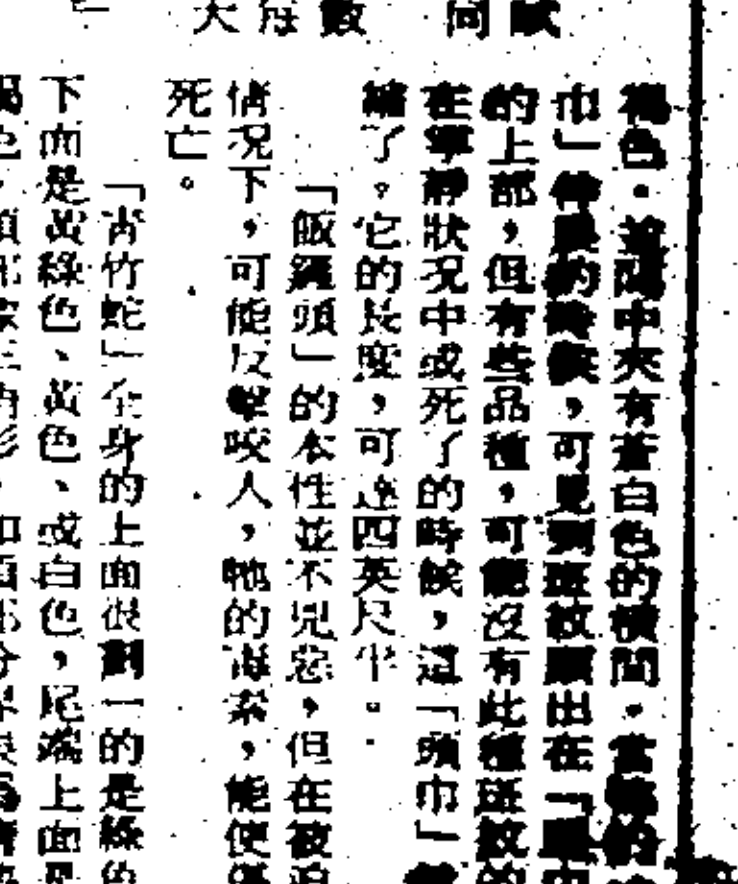 賦同
數每大
褐色。並隔中夾有蒼白色的橫間。當牠的
巾」伸展的時候，可見到斑紋顯出在「頭巾
的上部，但有些品種，可能沒有此種斑紋的
在寧靜狀况中或死了的時候，這「頭巾」
縮了。它的長度，可達四英尺半。
「飯鏟頭」的本性並不兇惡，但在被迫
情况下，可能反擊咬人，牠的毒素，能使
死亡。
「青竹蛇」全身的上面很劃一的是綠色
下面是黃綠色、黃色、或白色，尾端上面是